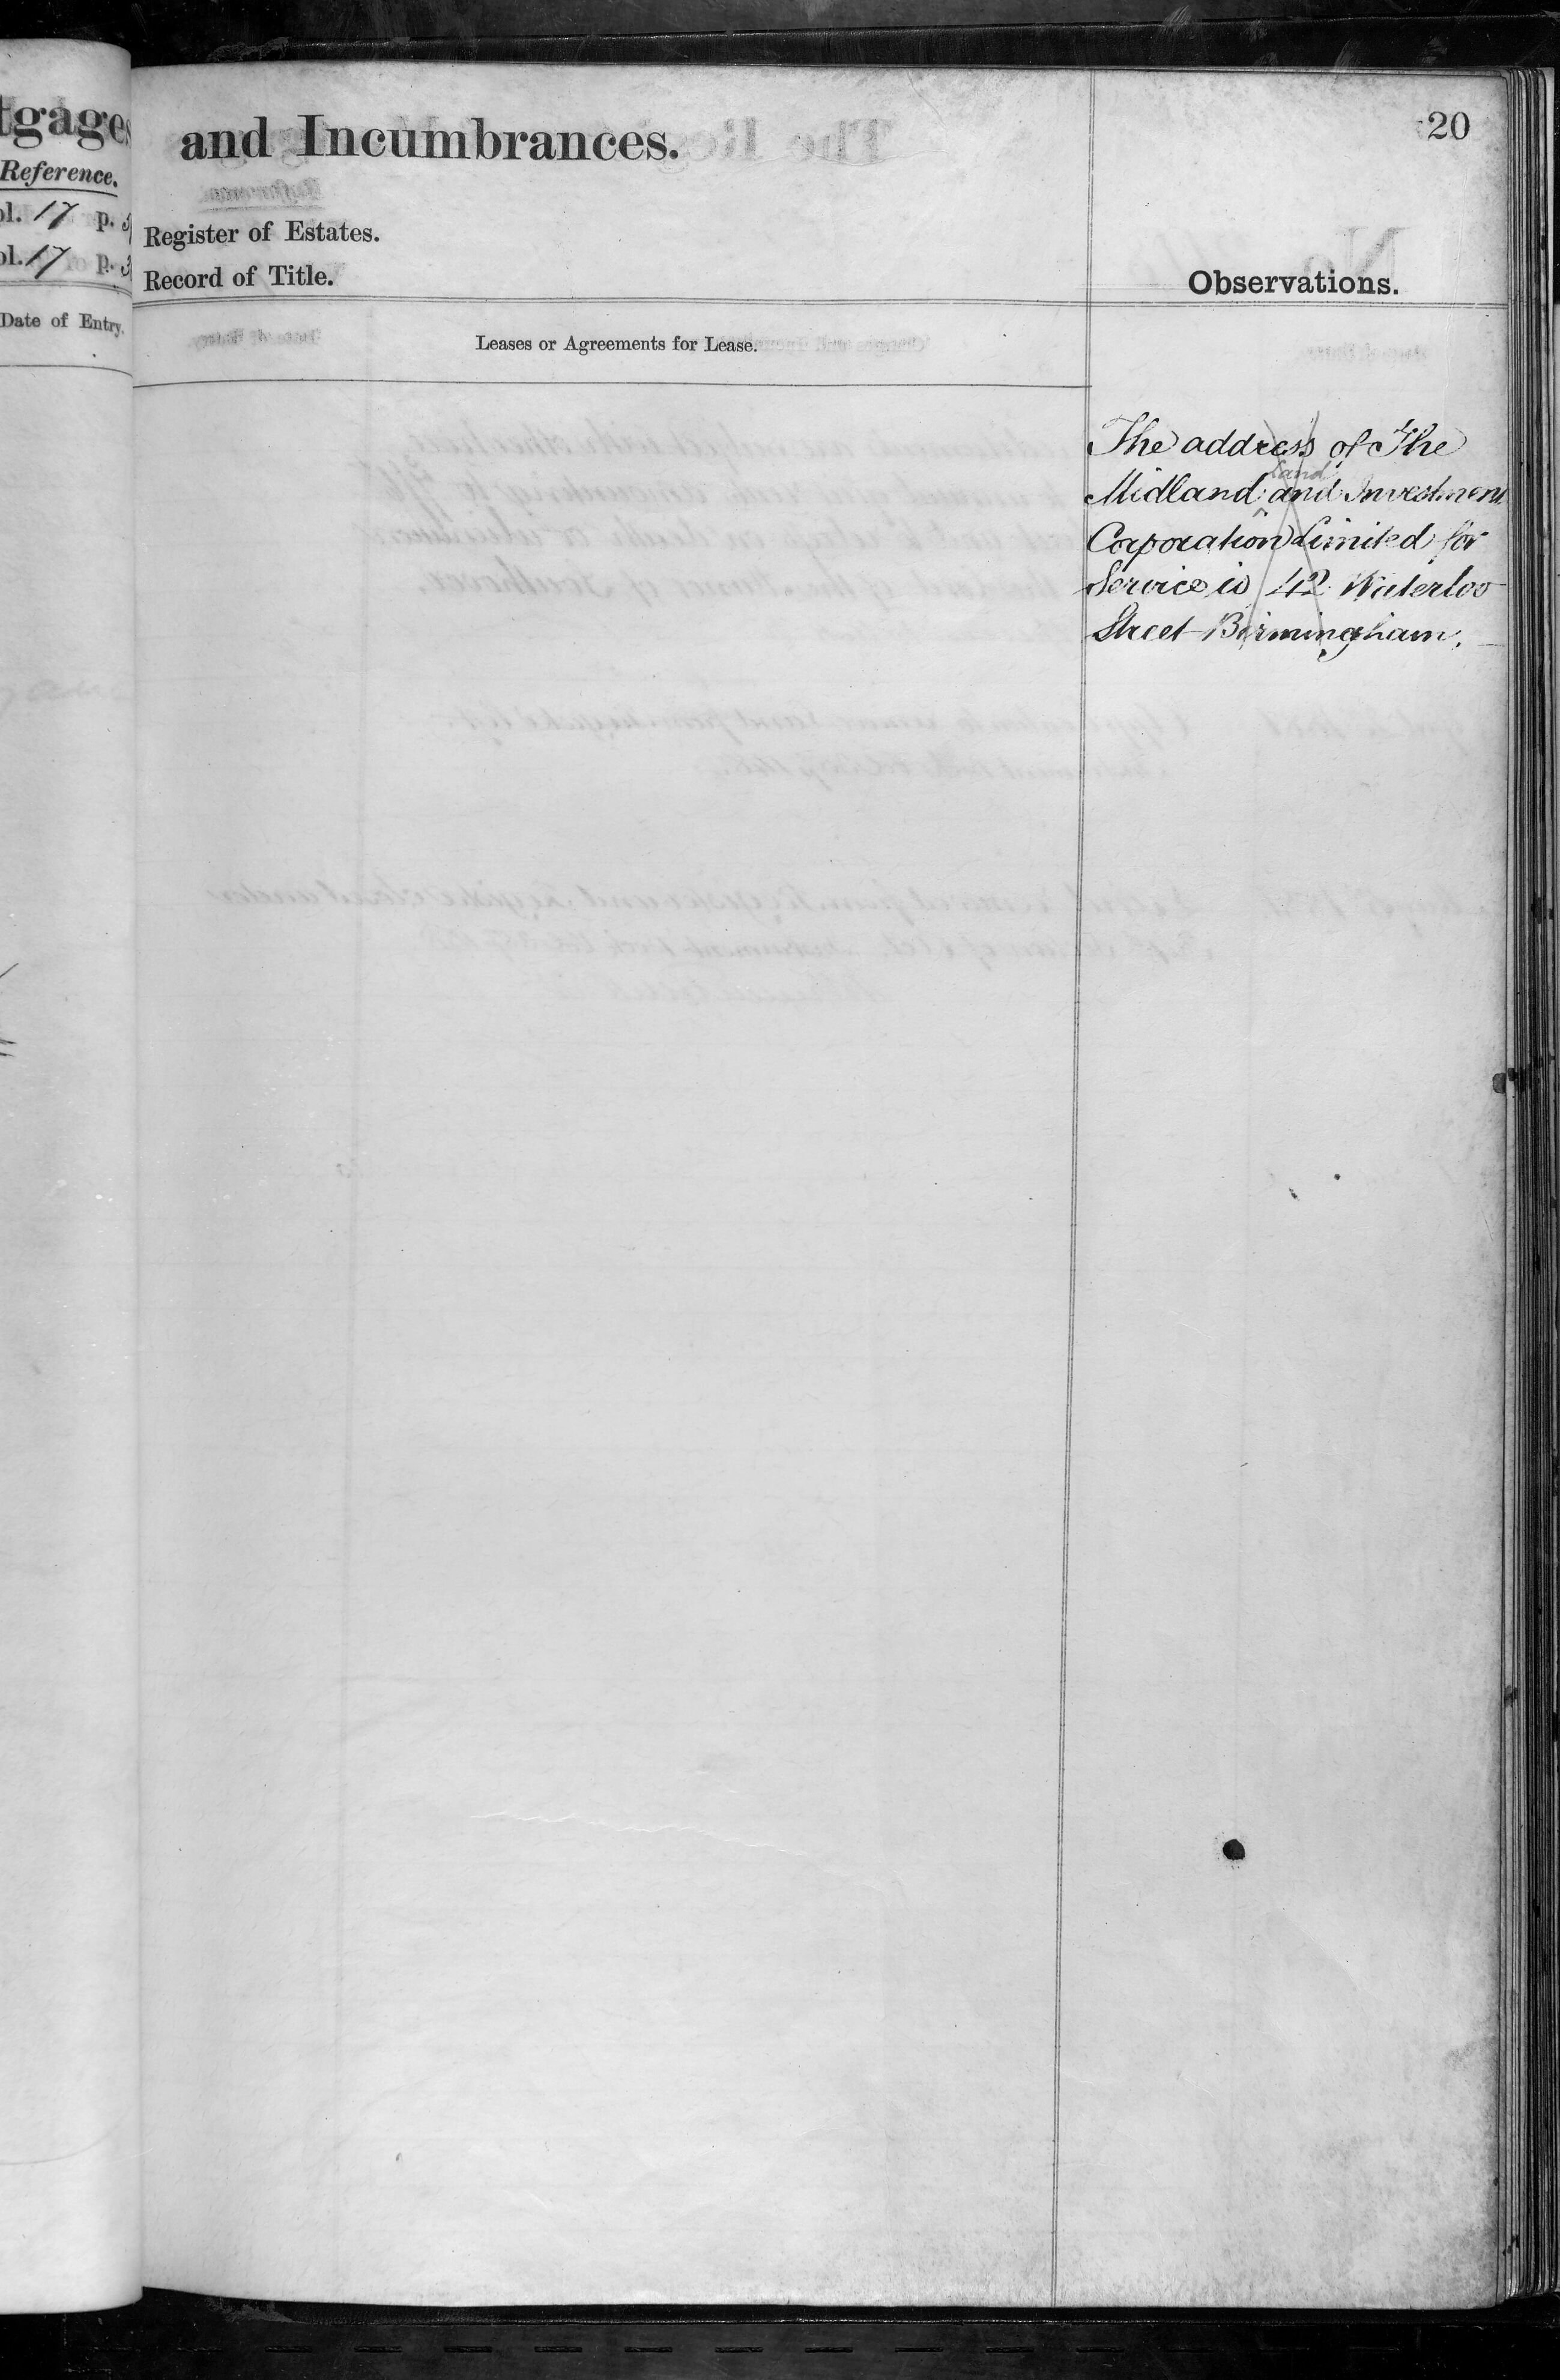 tgages
Reference.
ol. 17 p. 3
ol. 17 p. 3
Date of Entry.
and Incumbrances.
20
Register of Estates.
Record of Title.
Observations.
Leases or Agreements for Lease.
The address of The
Land
Midland and Investment
Corporation Limited for
Service is 42 Waterloo
Street Birmingham.